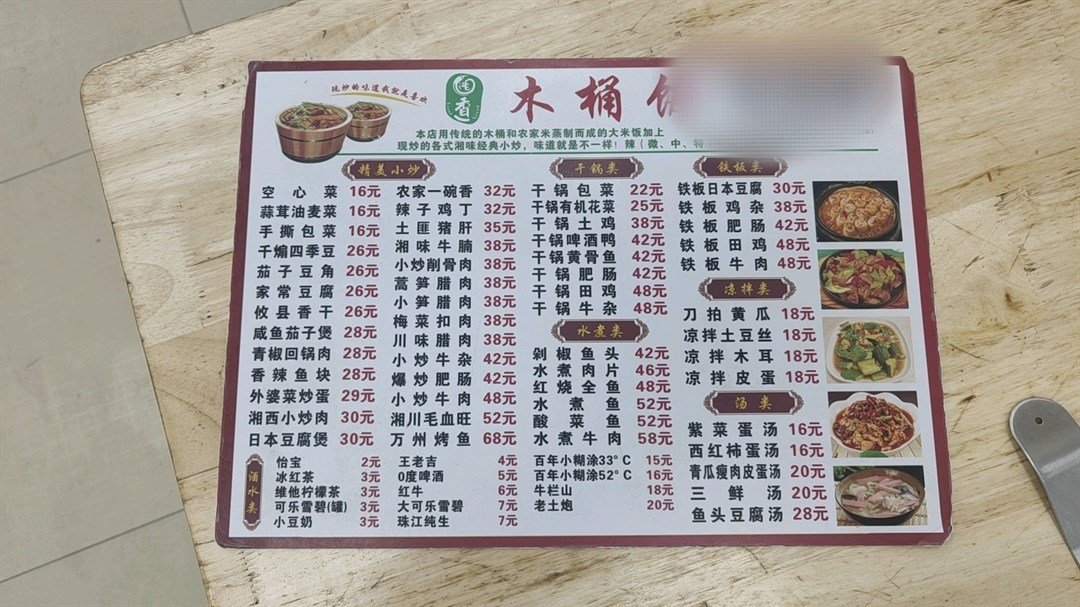 现炒的味道我就是喜欢
香
木桶
本店用传统的木桶和农家米蒸制而成的大米饭加上
现炒的各式湘味经典小炒,味道就是不一样!辣(微、中、特
精美小炒
空心菜 16元
蒜茸油麦菜 16元
手撕包菜 16元
干煸四季豆 26元
茄子豆角 26元
家常豆腐 26元
攸县香干 26元
咸鱼茄子煲 28元
青椒回锅肉 28元
香辣鱼块 28元
外婆菜炒蛋 29元
湘西小炒肉 30元
日本豆腐煲 30元
农家一碗香 32元
辣子鸡丁 32元
土匪猪肝 35元
湘味牛腩 38元
小炒削骨肉 38元
蒿笋腊肉 38元
小笋腊肉 38元
梅菜扣肉 38元
川味腊肉 38元
小炒牛杂 42元
爆炒肥肠 42元
小炒牛肉 48元
湘川毛血旺 52元
万州烤鱼 68元
干锅类
干锅包菜 22元
干锅有机花菜 25元
干锅土鸡 38元
干锅啤酒鸭 42元
干锅黄骨鱼 42元
干锅肥肠 42元
干锅田鸡 48元
干锅牛杂 48元
水煮类
剁椒鱼头 42元
水煮肉片 46元
红烧全鱼 48元
水煮鱼 52元
酸菜鱼 52元
水煮牛肉 58元
铁板类
铁板日本豆腐 30元
铁板鸡杂 38元
铁板肥肠 42元
铁板田鸡 48元
铁板牛肉 48元
凉拌类
刀拍黄瓜 18元
凉拌土豆丝 18元
凉拌木耳 18元
凉拌皮蛋 18元
汤类
紫菜蛋汤 16元
西红柿蛋汤 16元
青瓜瘦肉皮蛋汤 20元
三鲜汤 20元
鱼头豆腐汤 28元
酒水类
怡宝 2元
冰红茶 3元
维他柠檬茶 3元
可乐雪碧(罐) 3元
小豆奶 3元
王老吉 4元
0度啤酒 5元
红牛 6元
大可乐雪碧 7元
珠江纯生 7元
百年小糊涂33°C 15元
百年小糊涂52°C 16元
牛栏山 18元
老土炮 20元